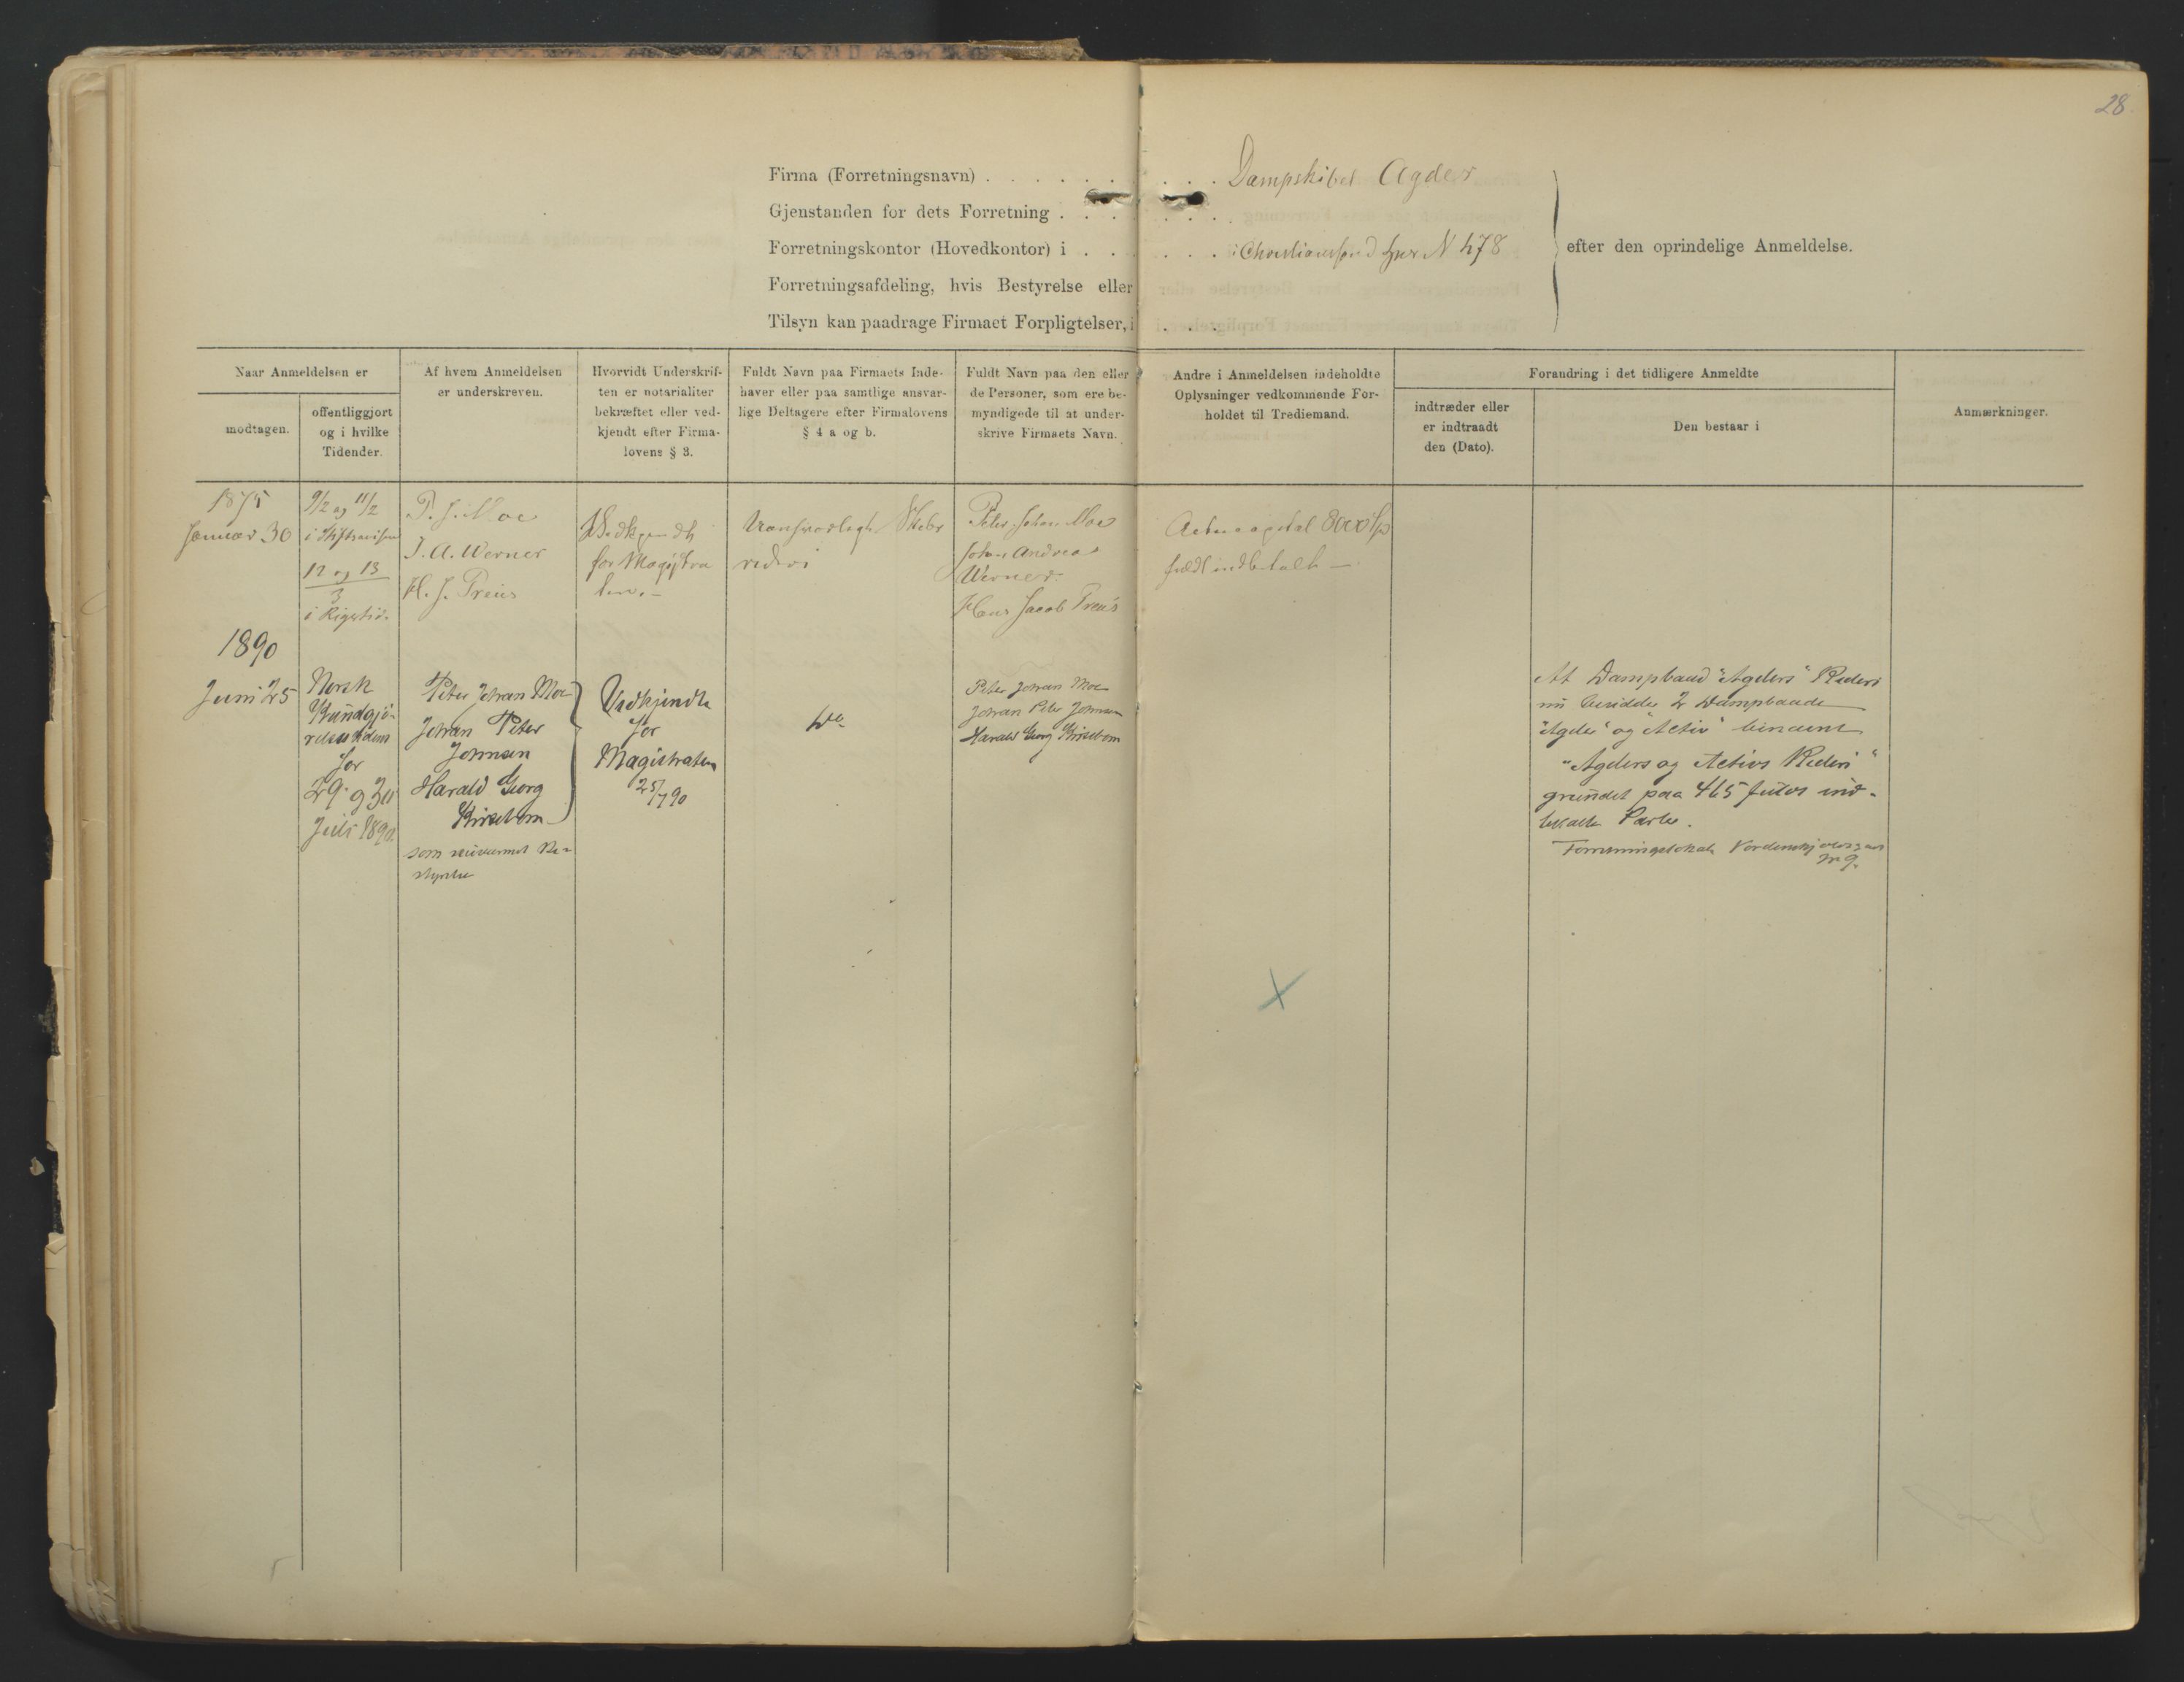 28.
Firma (Forretningsnavn) . . . . . . . . . . Dampskibet Agder
Gjenstanden for dets Forretning . . . . . . . .
Forretningskontor (Hovedkontor) i . . . . . . . i Christianssand N 478
Forretningsafdeling, hvis Bestyrelse eller
Tilsyn kan paadrage Firmaet Forpligtelser, i . . .
efter den oprindelige Anmeldelse.
Naar Anmeldelsen er
modtagen.
offentliggjort
og i hvilke
Tidender.
Af hvem Anmeldelsen
er underskreven.
Hvorvidt Underskrif-
ten er notarialiter
bekræftet eller ved-
kjendt efter Firma-
lovens § 3.
Fuldt Navn paa Firmaets Inde-
haver eller paa samtlige ansvar-
lige Deltagere efter Firmalovens
§ 4 a og b.
Fuldt Navn paa den eller
de Personer, som ere be-
myndigede til at under-
skrive Firmaets Navn.
Andre i Anmeldelsen indeholdte
Oplysninger vedkommende For-
holdet til Trediemand.
Forandring i det tidligere Anmeldte
indtræder eller
er indtraadt
den (Dato).
Den bestaar i
Anmærkninger.
1875
Januar 30
9/2 og 11/2
12 og 13
3
i Rigstid.
P. J. Moe
J. A. Werner
H. J. Preus
Vedkjendt
for Magistra
ten.-
rederi
Peter Johan Moe
Johan Andreas
Werner.
Hans Jacob Preus
Actiecapital 8000 Sp
fuldt indbetalt —
1890
Juni 25
Norsk
Kundgjø-
relsestidende
for
29 og 30
Juli 1890.
Peter Johan Moe
Johan Peter
Johnsen
Harald Georg
Kirsebom
som nuværende Be-
styrelse
Vedkjendt
for
Magistraten
25/7 90
Do
Peter Johan Moe
Johan Peter Johnsen
Harald Georg Kirsebom
At Dampbaad "Agders" Rederi
nu besidder 2 Dampbaade
"Agder" og "Activ" benævnt
"Agders og Activs Rederi"
grundet paa 465 fuldt ind-
betalte Parter.
Forretningslokale Nordenskjolds